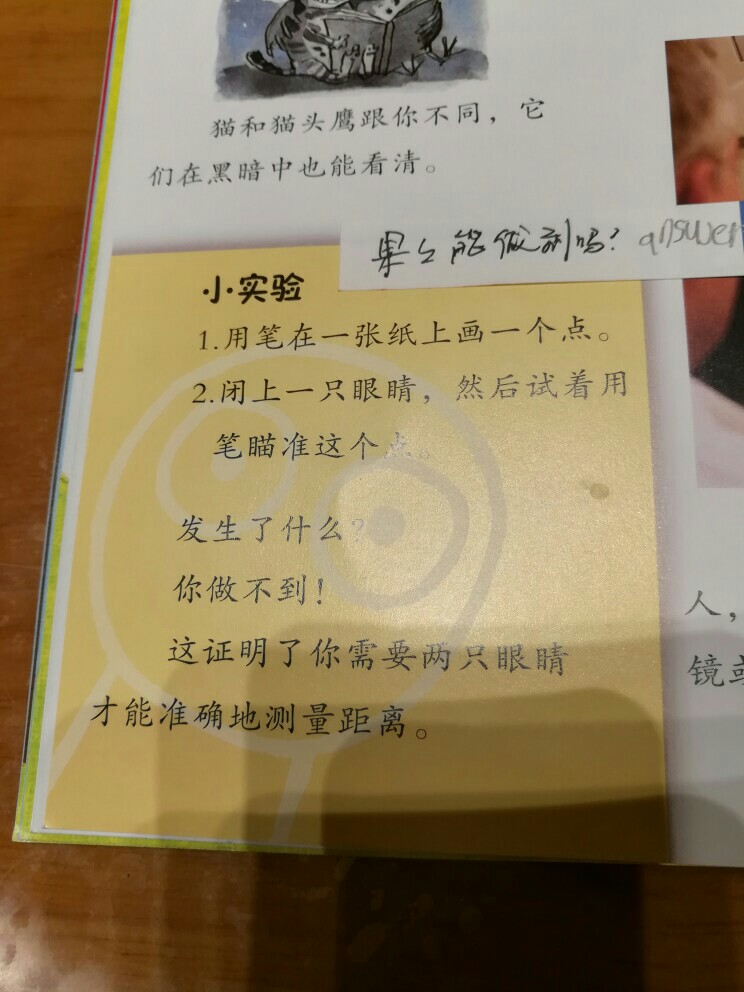 猫和猫头鹰跟你不同，它
们在黑暗中也能看清。
能做到吗？answer
小实验
1.用笔在一张纸上画一个点。
2.闭上一只眼睛，然后试着用
笔瞄准这个点。
发生了什么？
你做不到！
这证明了你需要两只眼睛
才能准确地测量距离。
人，
镜或